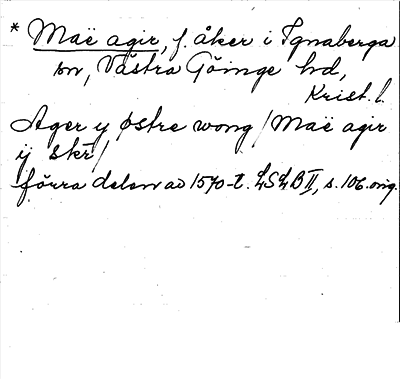 * Maë agir, f. åker i Ignaberga
sn, Västra Göinge hd,
Krist. l.
Ager y østre wong / Maë agir
ÿ skr /
förra delen av 1570-t. LSLB II, s. 106. orig.